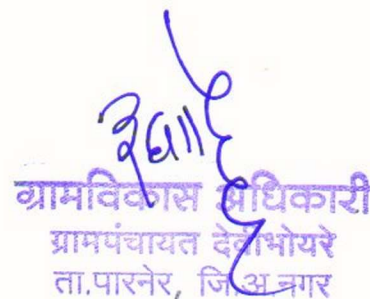 ग्रामविकास अधिकारी
ग्रामपंचायत देवीभोयरे
ता.पारनेर, जि.अ.नगर